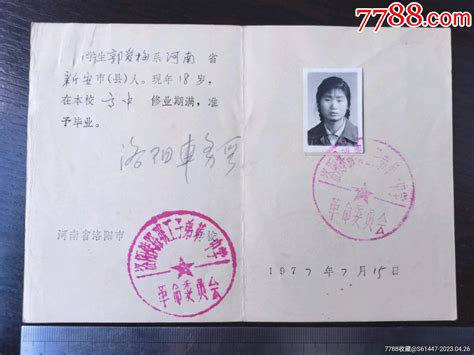 7788.com
学生郭爱梅系河南省
新安市(县)人。现年18岁,
在本校高中修业期满,准
予毕业。
河南省洛阳市
革命委员会
革命委员会
1977年7月15日
7788收藏@S61447-2023.04.26